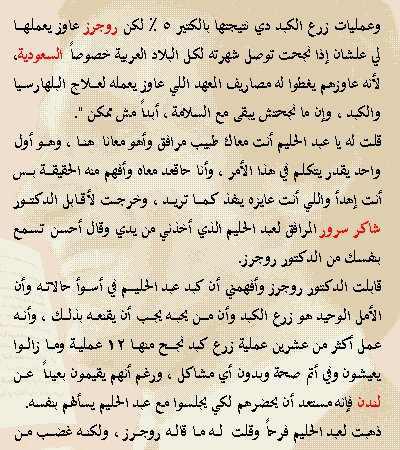 وعمليات زرع الكبد دي نتيجتها بالكتير ٥ ٪ لكن روجرز عاوز يعملهـا
لي علشان إذا نجحت توصل شهرته لكل البلاد العربية خصوصاً السعودية،
لأنه عاوزهم يغطوا له مصاريف المعهد اللي عاوز يعمله لعـلاج البلهارسيا
والكبد ، وإن ما نجحتش يبقى مع السلامة ، أبداً مش ممكن ".
قلت له يا عبد الحليم أنت معاك طبيب مرافق وأهو معانا هنـا ، وهـو أول
واحد يقدر يتكلم في هذا الأمر ، وأنا حاقعد معاه وأفهم منه الحقيقـة بـس
أنت إهدأ واللي أنت عايزه ينفذ كـما تريـد ، وخرجـت لأقـابل الدكتـور
شاكر سرور المرافق لعبد الحليم الذي أخذني من يدي وقال أحسن تسمع
بنفسك من الدكتور روجرز.
قابلت الدكتور روجرز وأفهمني أن كبد عبد الحليـم في أسـوأ حالاتـه وأن
الأمل الوحيد هو زرع الكبد وأن مـن يحبـه يجـب أن يقنعـه بذلـك ، وأنـه
عمل أكثر من عشرين عملية زرع كبد نجـح منهـا ١٢ عمليـة ومـا زالـوا
يعيشون وفي أتم صحة وبدون أي مشاكل ، ورغم أنهم يقيمون بعيداً عـن
لندن فإنه مستعد أن يحضرهم لكي يجلسوا مع عبد الحليم يسألهم بنفسه.
ذهبت لعبد الحليم فرحاً وقلت لـه ما قالـه روجـرز ، ولكنـه غضـب مـن